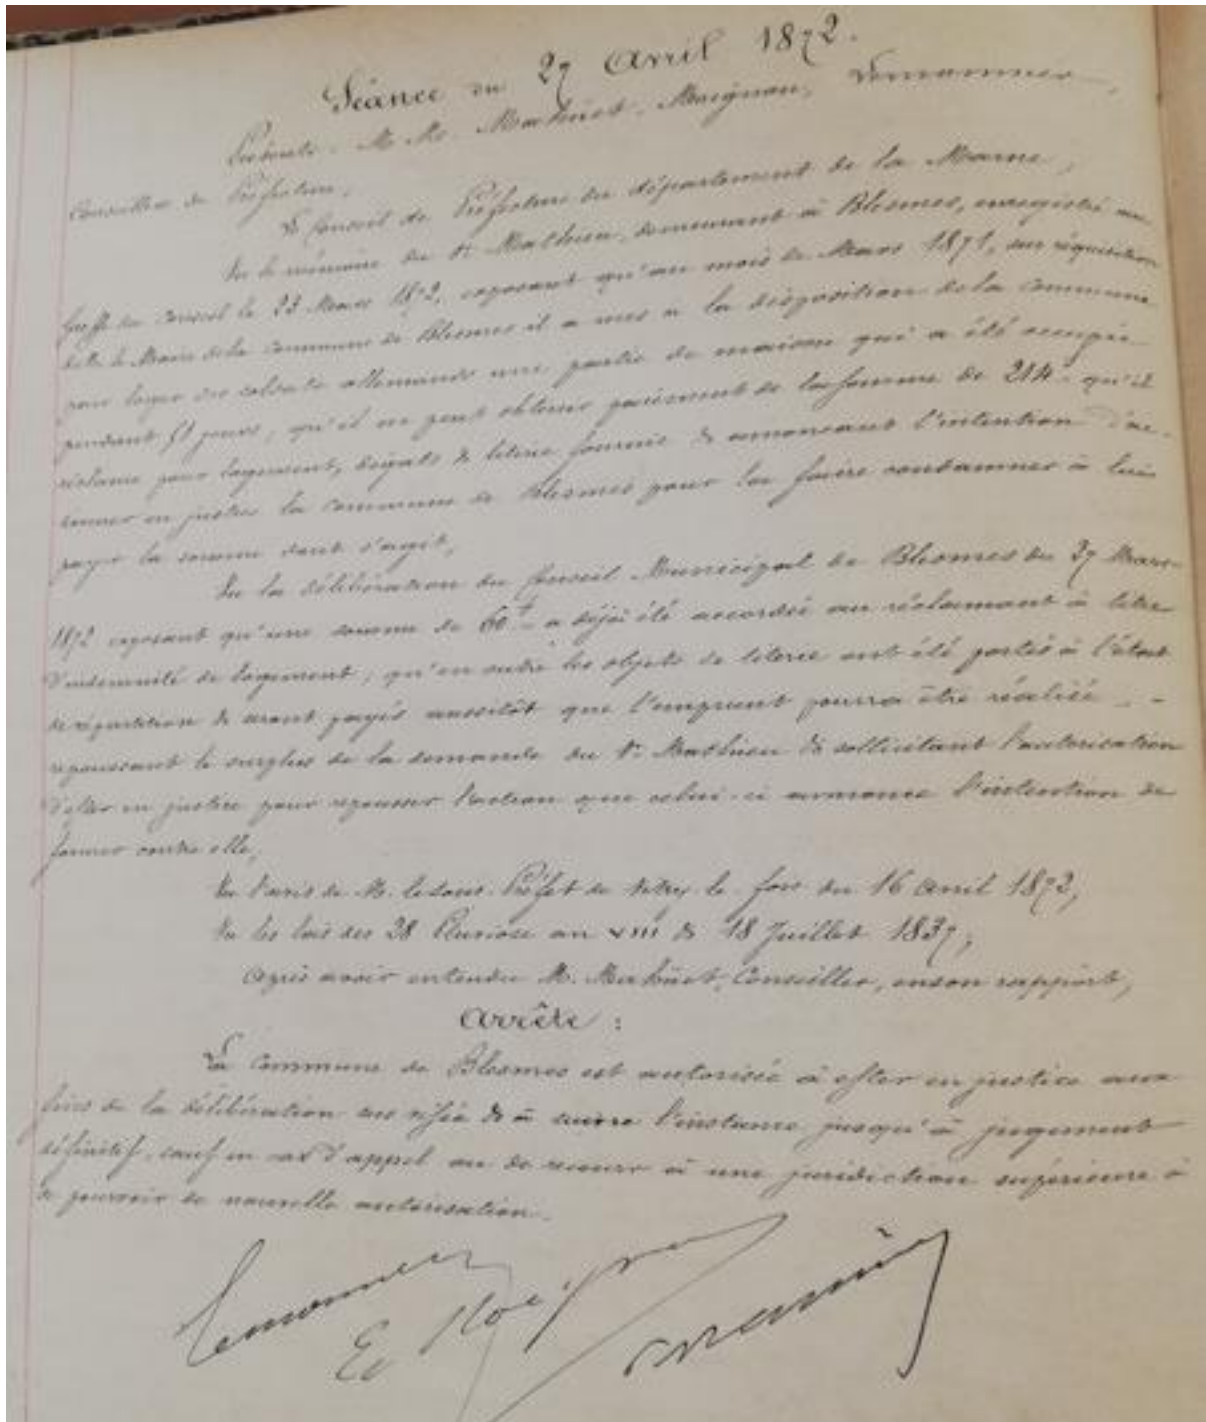 Séance du 27 Avril 1872.
Présents. M. M. Mathiet. Roignon, Lemonnier,
Conseillers de Préfecture,
Le Conseil de Préfecture du département de la Marne,
Vu le mémoire du Sr Mathieu, demeurant à Blesmes, enregistré au
Greffe du Conseil le 23 Mars 1872, exposant qu'au mois de Mars 1871, sur réquisition
de M. le Maire de la commune de Blesmes il a mis à la disposition de la commune
pour loger des soldats allemands une partie de maison qui a été occupée
pendant 51 jours, qu'il ne peut obtenir paiement de la somme de 214 f qu'il
réclame pour logement, dégats & literie fournie & annonçant l'intention d'ac-
tionner en justice la commune de Blesmes pour la faire condamner à lui
payer la somme dont s'agit,
Vu la délibération du Conseil Municipal de Blesmes du 27 Mars
1872 exposant qu'une somme de 60 f a déjà été accordée au réclamant à titre
d'indemnité de logement, qu'en outre les objets de literie ont été portés à l'état
de répartition & seront payés aussitôt que l'emprunt pourra être réalisé
repoussant le surplus de la demande du Sr Mathieu & sollicitant l'autorisation
d'ester en justice pour repousser l'action que celui-ci annonce l'intention de
former contre elle,
Vu l'avis de M. le Sous-Préfet de Vitry le fois du 16 Avril 1872,
Vu les lois des 28 Pluviose an VIII & 18 Juillet 1837,
Après avoir entendu M. Conseiller, en son rapport,
Arrête :
La Commune de Blesmes est autorisée à ester en justice aux
fins de la délibération sus visée & à suivre l'instance jusqu'à jugement
définitif, sauf en cas d'appel ou de recours à une juridiction supérieure à
se pourvoir de nouvelle autorisation.
Lemonnier